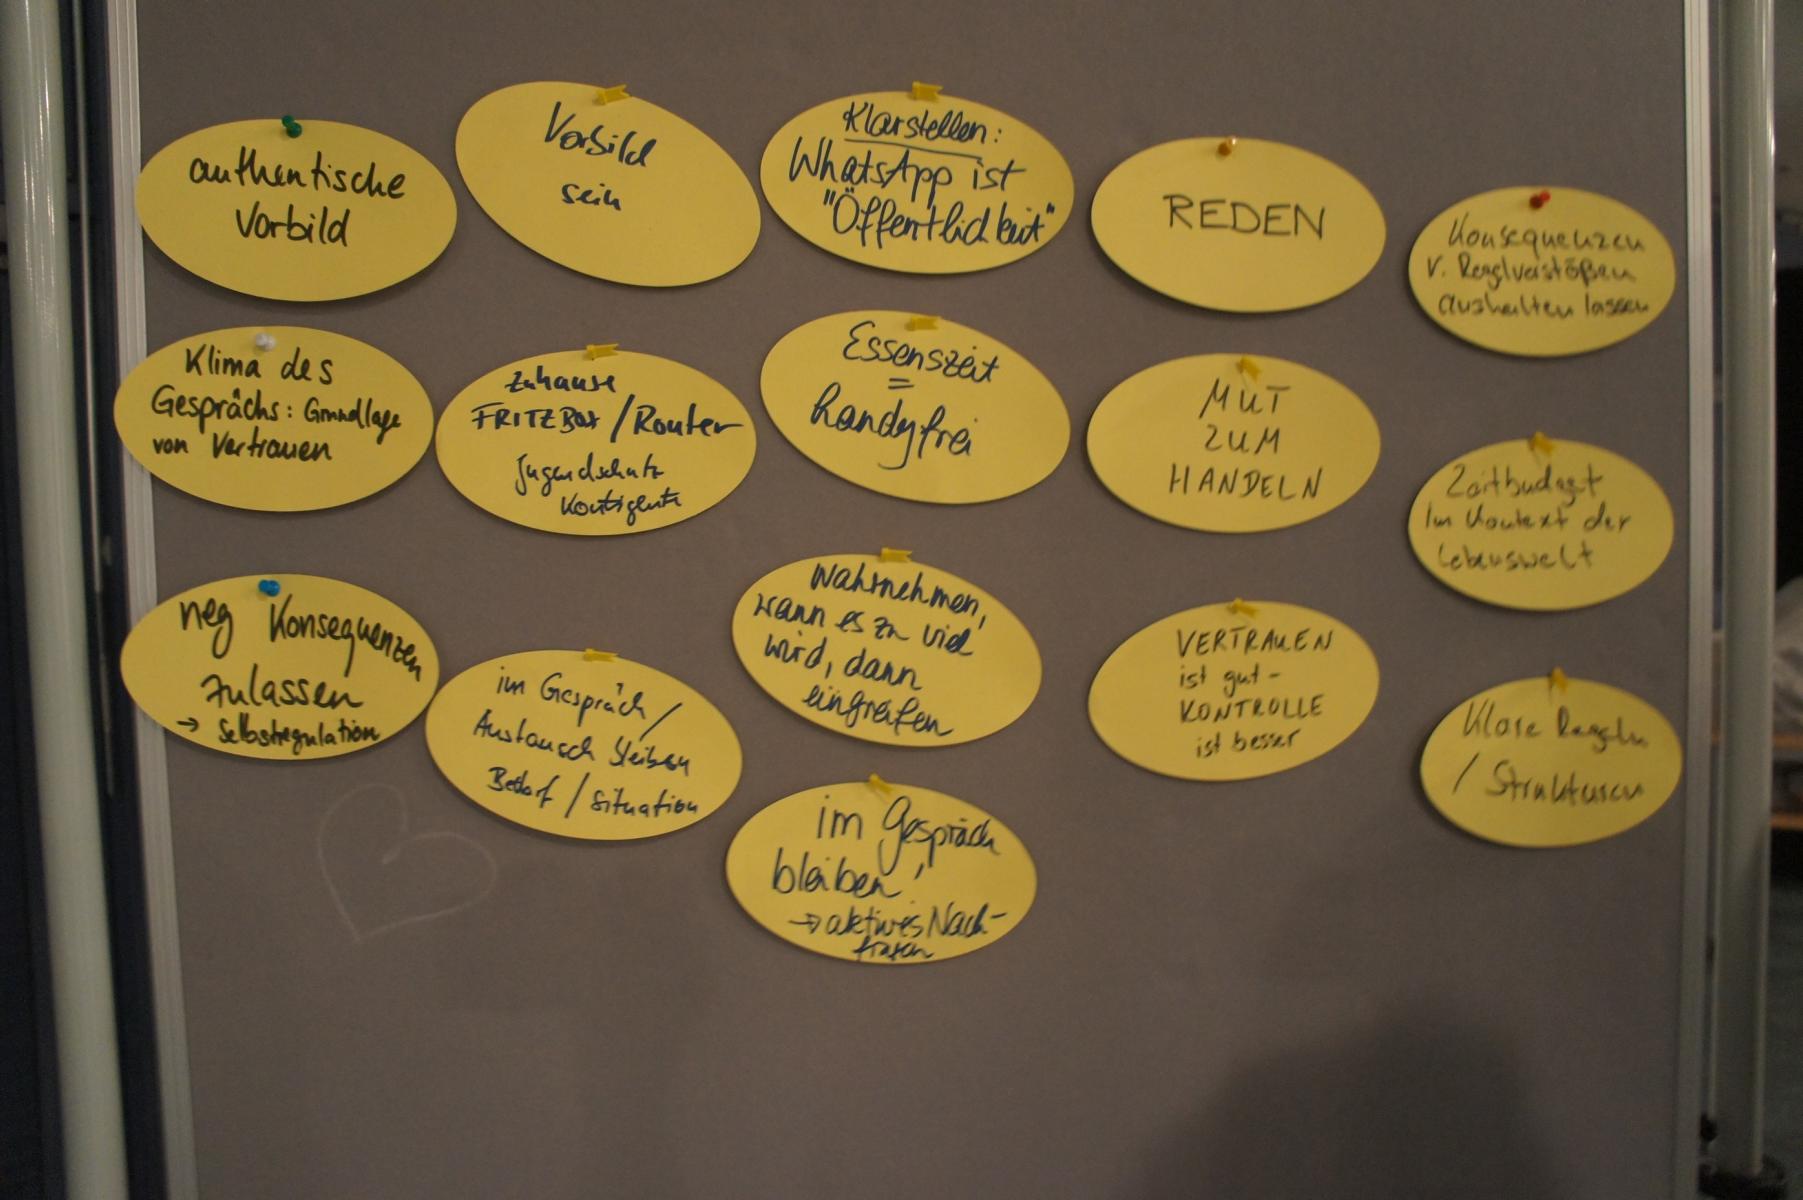 authentische
Vorbild
Klima des
Gesprächs: Grundlage
von Vertrauen
neg Konsequenzen
zulassen
→ Selbstregulation
Vorbild
sein
Zuhause
FRITZBOX / Router
Jugendschutz
Kontigente
im Gespräch /
Austausch bleiben
Bedarf / Situation
Klarstellen:
WhatsApp ist
"Öffentlichkeit"
Essenszeit
=
handyfrei
Wahrnehmen,
wann es zu viel
wird, dann
eingreifen
im Gespräch
bleiben,
→ aktives Nach-
fragen
REDEN
MUT
ZUM
HANDELN
VERTRAUEN
ist gut -
KONTROLLE
ist besser
Konsequenzen
v. Regelverstößen
aushalten lassen
Zeitbudget
im Kontext der
Lebenswelt
Klare Regeln
/ Strukturen